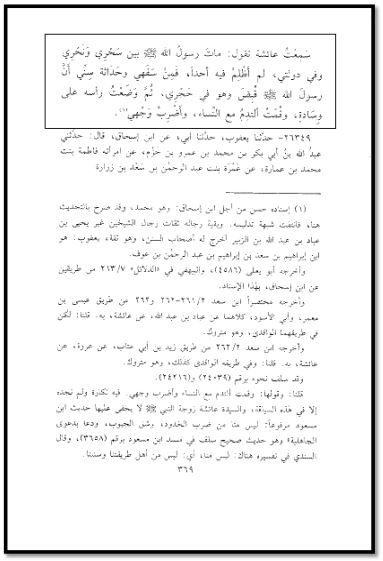 سَمِعْتُ عائشة تقول: ماتَ رسولُ الله ﷺ بين سَحْرِي وَنَحْرِي
وفي دولتي، لم أَظْلِمْ فيه أحداً، فَمِنْ سَفَهي وحَدَاثة سِنِّي أَنَّ
رسولَ الله ﷺ قُبِضَ وهو في حَجْرِي، ثُمَّ وَضَعْتُ رأسه على
وِسَادةٍ، وقُمْتُ أَلتدِمُ مع النِّساء، وأَضْرِبُ وَجْهي(١).
٢٦٣٤٩- حدَّثنا يعقوب، حدَّثنا أبي، عن ابن إسحاق، قال: حدَّثني
عبدُ الله بنُ أبي بكر بن محمد بن عمرو بن حَزْم، عن امرأته فاطمة بنت
محمد بن عمارة، عن عَمْرَة بنت عبد الرحمٰن بن سَعْد بن زرارة
(١) إسناده حسن من أجل ابن إسحاق: وهو محمد، وقد صرح بالتحديث
هنا، فانتفت شبهة تدليسه. وبقية رجاله ثقات رجال الشيخين غير يحيى بن
عباد بن عبد الله بن الزبير أخرج له أصحاب السنن، وهو ثقة، يعقوب: هو
ابن إبراهيم بن سعد بن إبراهيم بن عبد الرحمٰن بن عوف.
وأخرجه أبو يعلى (٤٥٨٦)، والبيهقي في «الدلائل» ٢١٣/٧ من طريقين
عن ابن إسحاق، بهٰذا الإسناد.
وأخرجه مختصراً ابن سعد ٢٦١/٢-٢٦٢ و٢٦٢ من طريق عيسى بن
معمر، وأبي الأسود، كلاهما عن عباد بن عبد الله، عن عائشة، به. قلنا: لكن
في طريقهما الواقدي، وهو متروك.
وأخرجه ابن سعد ٢٦٢/٢ من طريق زيد بن أبي عتاب، عن عروة، عن
عائشة، به. قلنا: وفي طريقه الواقدي كذلك، وهو متروك.
وقد سلف نحوه برقم (٢٤٠٣٩) و(٢٤٢١٦).
قلنا: وقولها: وقمت ألتدم مع النساء وأضرب وجهي. فيه نكارة ولم نجده
إلا في هذه السياقة، والسيدة عائشة زوجة النبي ﷺ لا يخفى عليها حديث ابن
مسعود مرفوعاً: ليس منا من ضرب الخدود، وشق الجيوب، ودعا بدعوى
الجاهلية» وهو حديث صحيح سلف في مسند ابن مسعود برقم (٣٦٥٨)، وقال
السندي في تفسيره هناك: ليس منا، أي: ليس من أهل طريقتنا وسنتنا.
٣٦٩